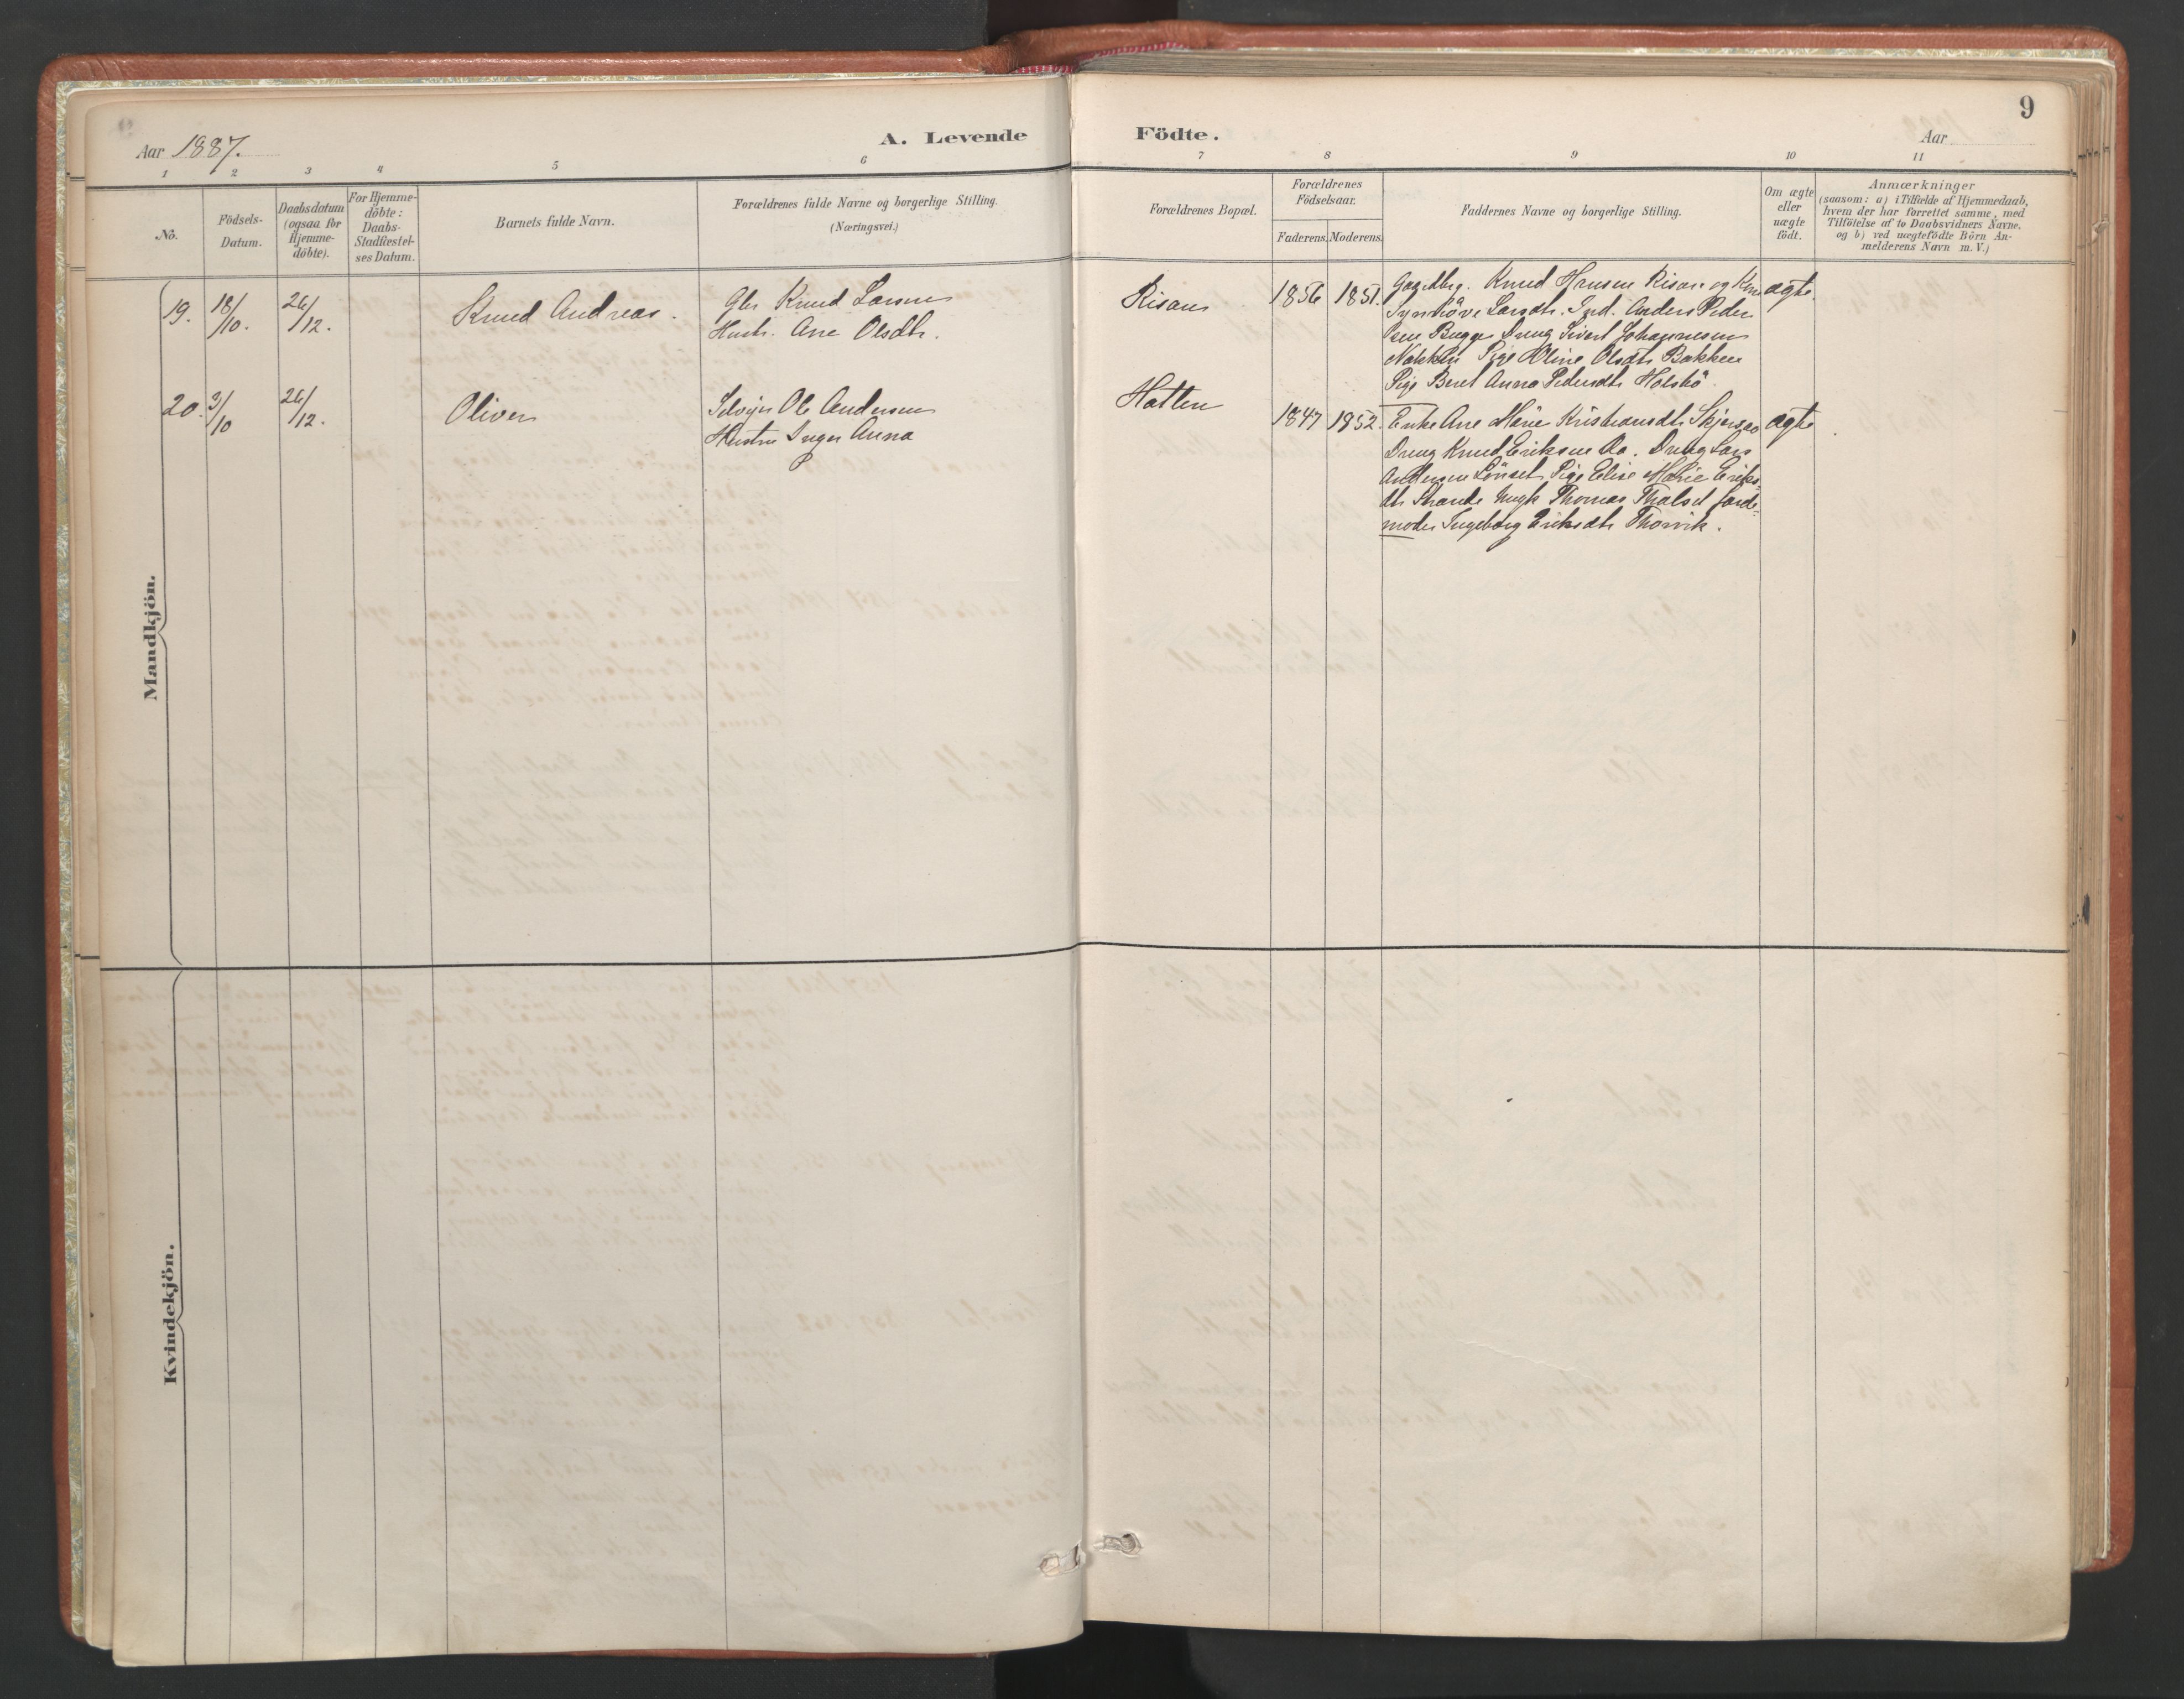 9
Aar 1887.
A. Levende
Födte.
Aar
1 2 3 4 5 6 7 8 9 10 11
No.
Födsels-
Datum.
Daabsdatum
(ogsaa for
Hjemme-
döbte).
For Hjemme-
döbte:
Daabs-
Stadfæstel-
ses Datum.
Barnets fulde Navn.
Forældrenes fulde Navne og borgerlige Stilling.
(Næringsvei.)
Forældrenes Bopæl.
Forældrenes
Födselsaar.
Faderens. Moderens.
Faddernes Navne og borgerlige Stilling.
Om ægte
eller
uægte
födt.
Anmærkninger
(saasom: a) i Tilfælde af Hjemmedaab,
hvem der har forrettet samme, med
Tilföielse af to Daabsvidners Navne.
og b) ved uægtefödte Börn An-
melderens Navn m. V.)
Mandkjön.
19. 18/10. 26/12. Knud Andreas.
Gbr Knud Larsen
Hustr. Ane Olsdtr.
Risan 1856 1851.
Knud Hansen Risan og Kone
Synnöve Larsdtr. Ind. Anders Peder
sen Bugge Dreng Sivert Johannesen
Nakken Pige Oline Olsdtr Bakken
Pige Beret Anna Pedersdtr Holsbö.
ægte.
20. 3/10 26/12. Oliver
Selvejer Ole Andersen
Hustru Inger Anna
P
Hatlen 1847 1852.
Enke Ane Marie Kristiansdtr
Dreng Knud Eriksen Do. Dreng Lars
Andersen Lönset Pige Elise Marie Eriks-
dtr Strande Ungk Thomas Jorde-
moder Ingeborg Eriksdtr Thorvik.
ægte
Kvindekjön.